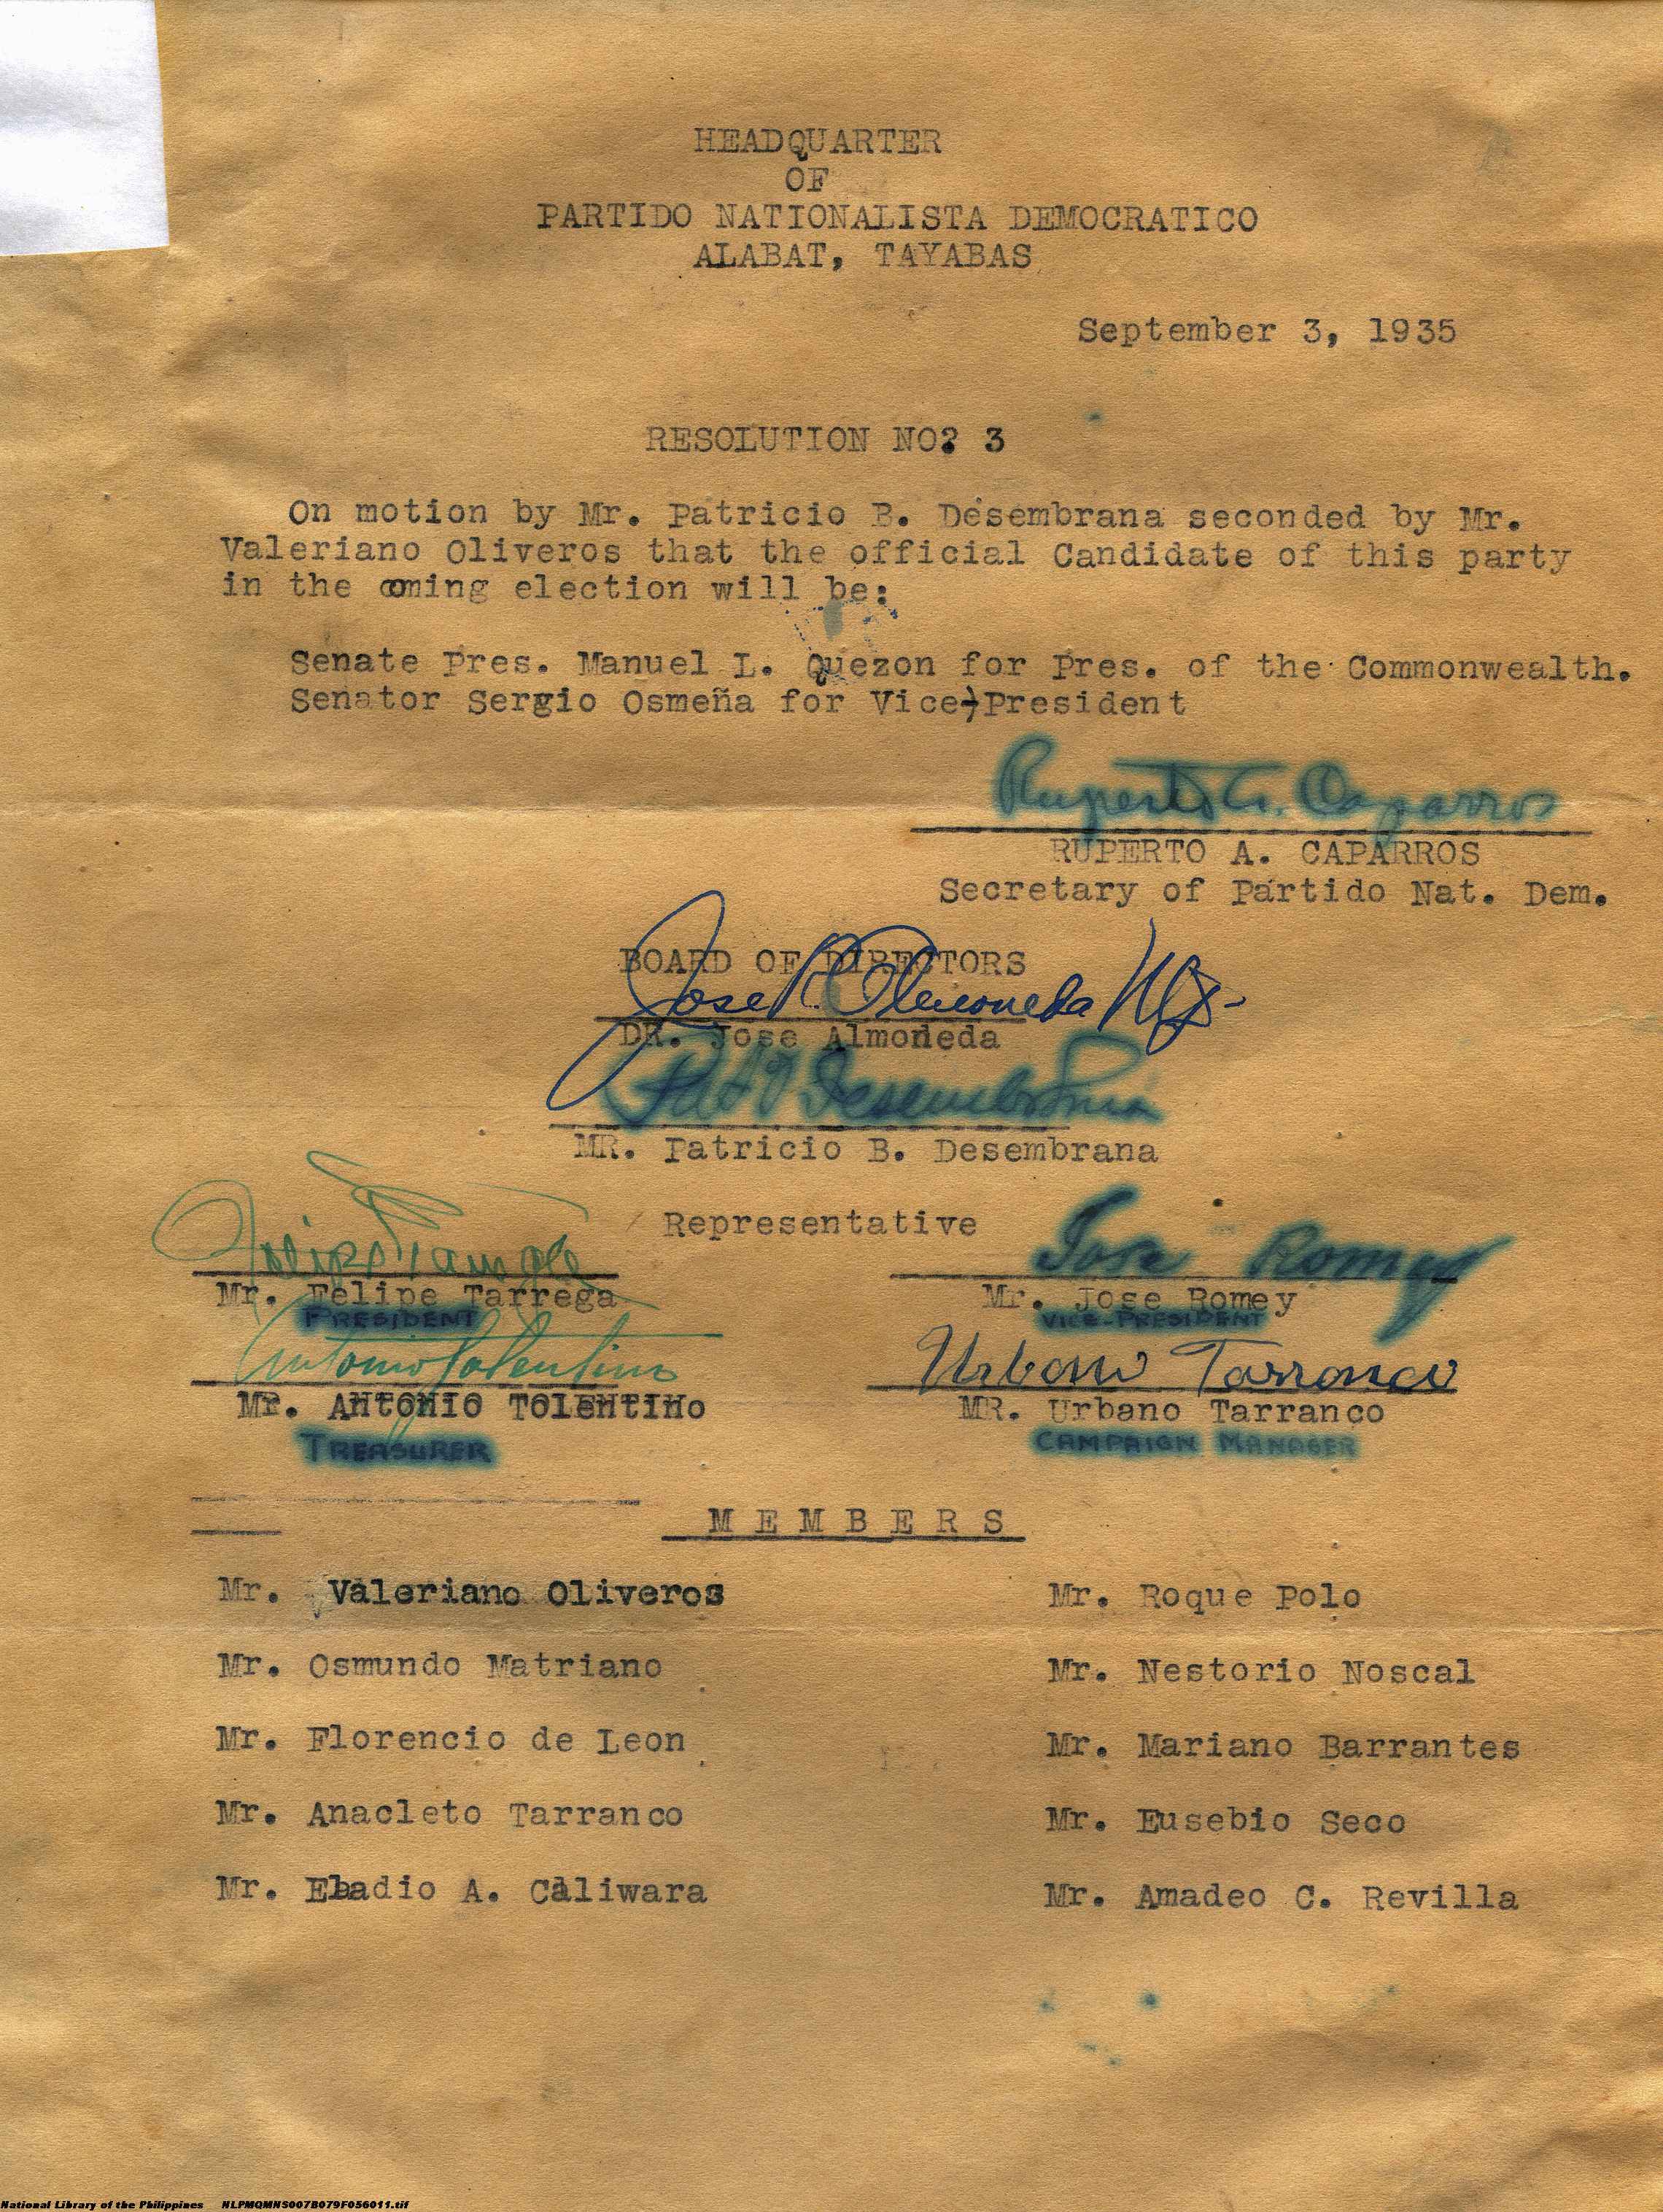 HEADQUARTER
OF
PARTIDO NATIONALISTA DEMOCRATICO
ALABAT, TAYABAS
September 3, 1935
RESOLUTION NO? 3
On motion by Mr. Patricio B. Desembrana seconded by Mr.
Valeriano Oliveros that the official Candidate of this party
in the coming election will be:
Senate Pres. Manuel L. Quezon for Pres. of the Commonwealth.
Senator Sergio Osmeña for Vice-President
Ruperto A. Caparros
RUPERTO A. CAPARROS
Secretary of Partido Nat. Dem.
BOARD OF DIRECTORS
Jose Almoneda
DR. Jose Almoneda
Desembrana
MR. Patricio B. Desembrana
Representative
Felipe Tarrega Jose Romey
Mr. Felipe Tarrega Mr. Jose Romey
PRESIDENT VICE-PRESIDENT
Antonio Tolentino Urbano Tarranco
Mr. ANTONIO TOLENTINO MR. Urbano Tarranco
TREASURER CAMPAIGN MANAGER
M E M B E R S
Mr. Valeriano Oliveros Mr. Roque Polo
Mr. Osmundo Matriano Mr. Nestorio Noscal
Mr. Florencio de Leon Mr. Mariano Barrantes
Mr. Anacleto Tarranco Mr. Eusebio Seco
Mr. Eladio A. Caliwara Mr. Amadeo C. Revilla
National Library of the Philippines NLPMQMNS007B079F056011.tif